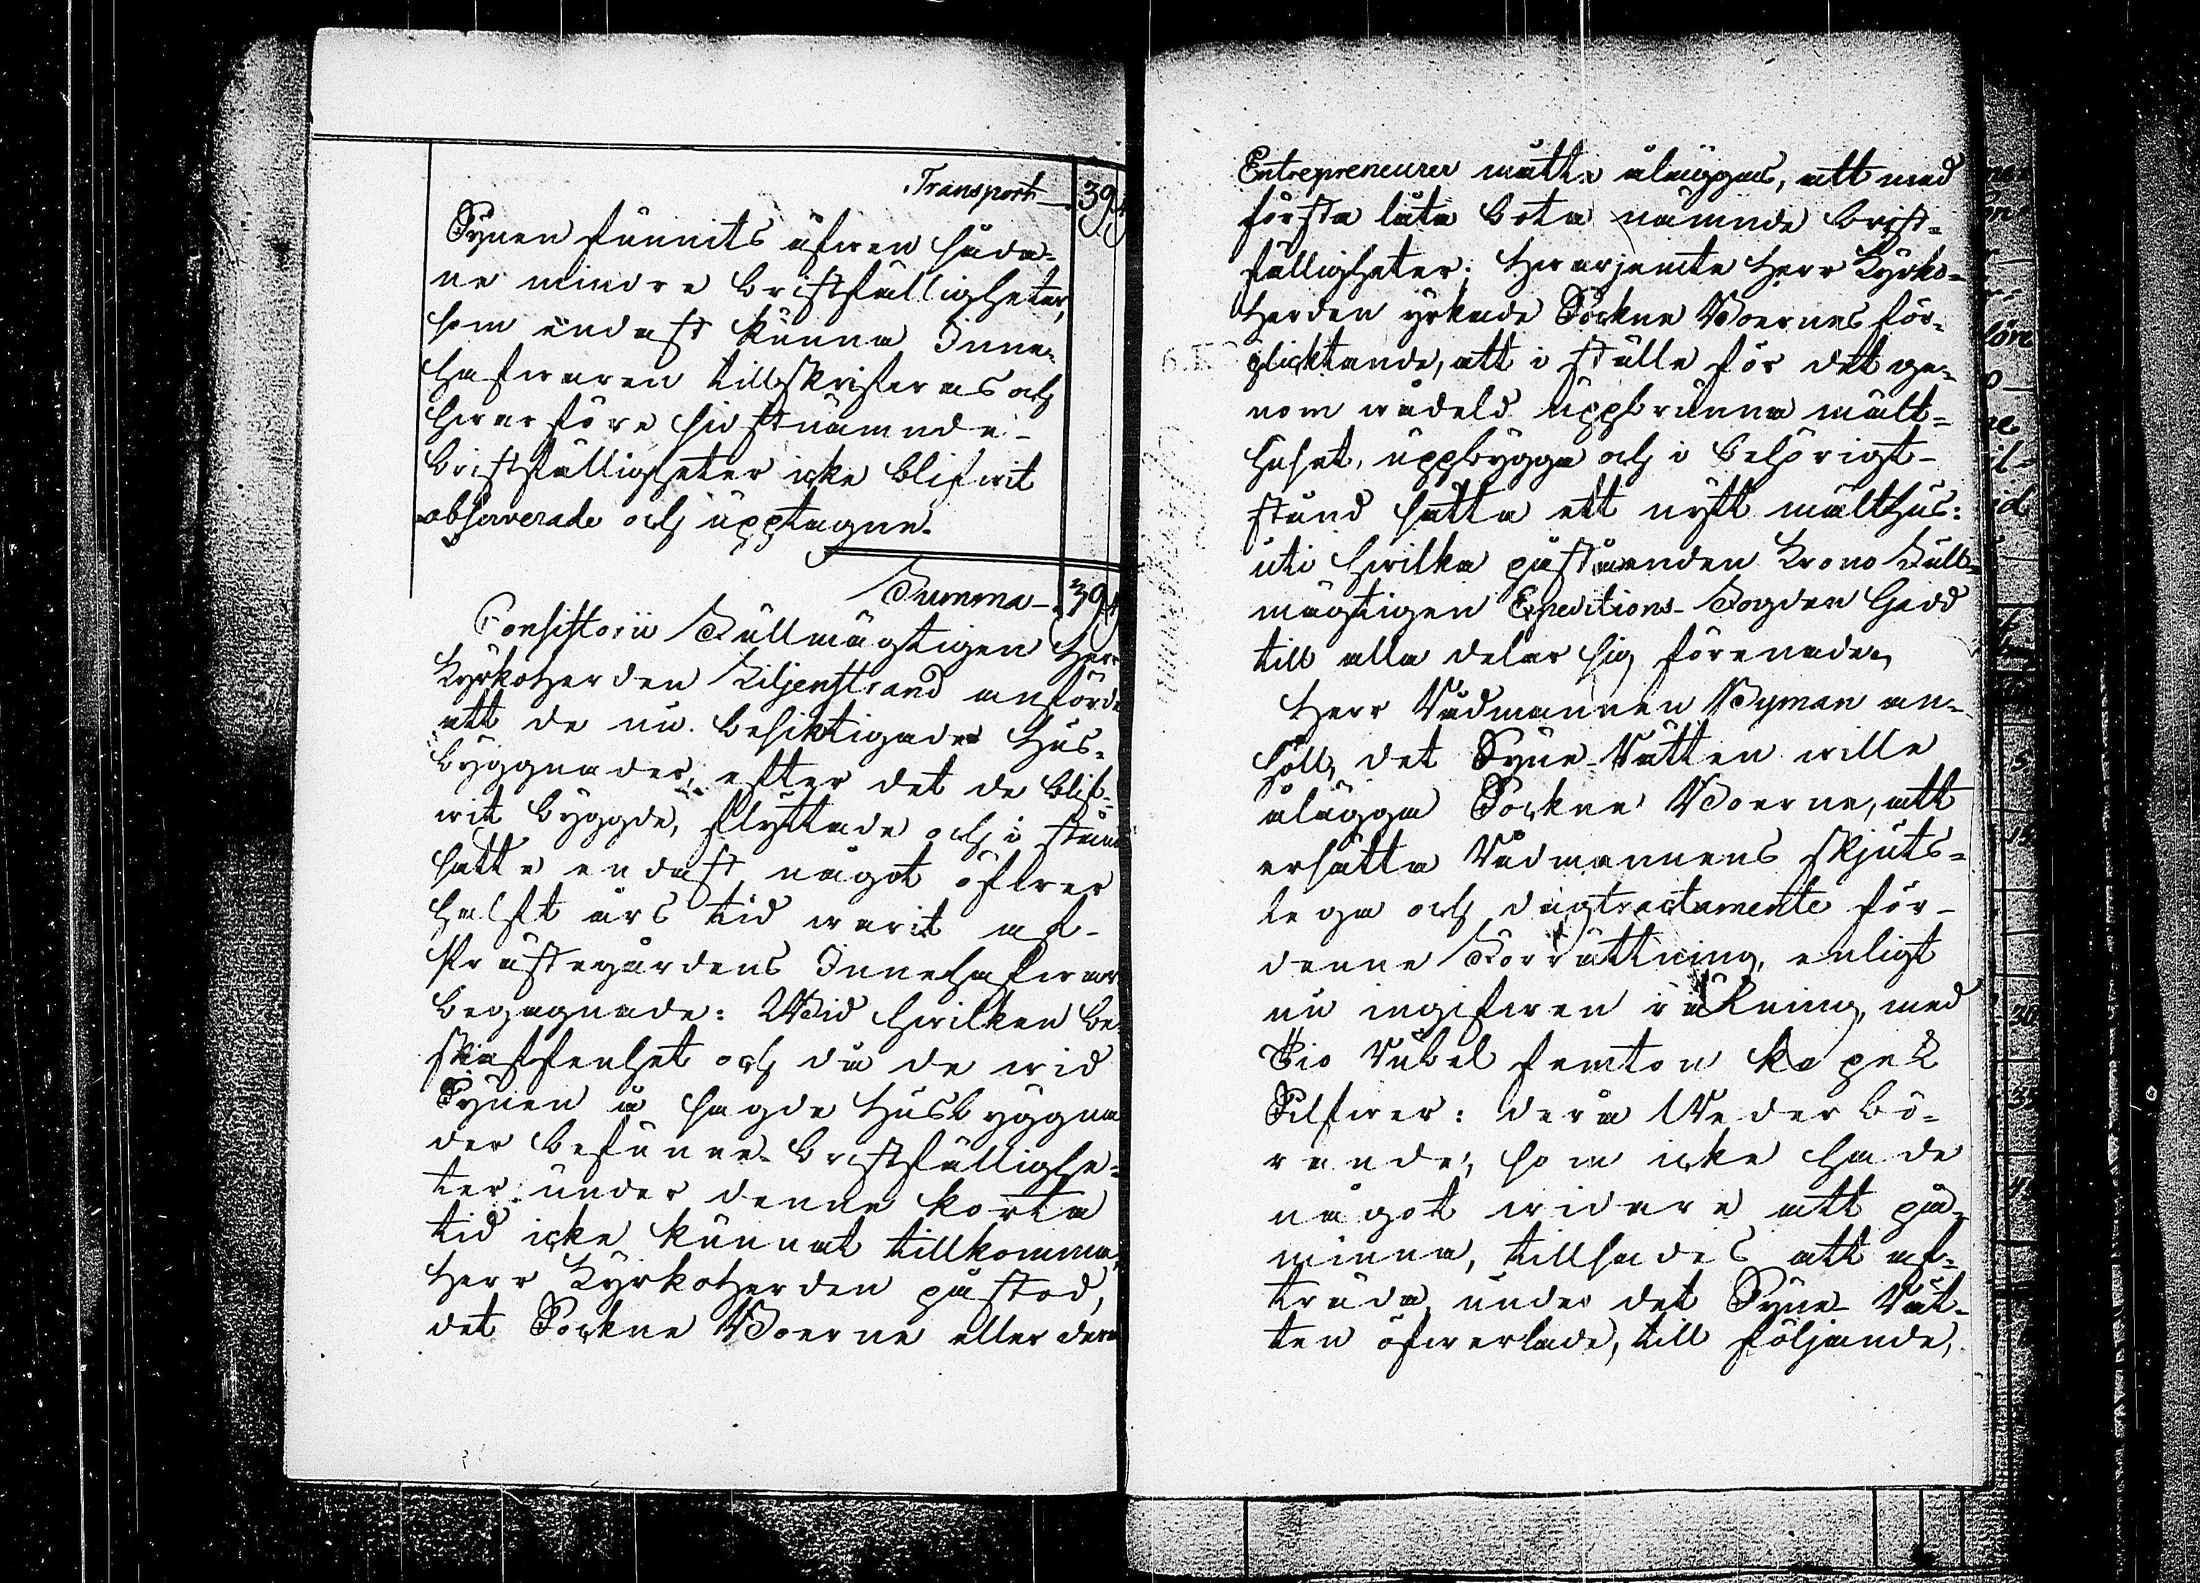 Transport 394
Synen funnits äfven såda-
ne mindre bristfälligheter,
som endast kunna Inne-
hafwaren tillskrifwas och
hwarföre sistnämnde
bristfälligheter icke blifwit
observerade och upptagne.
Summa 394
Consistorii Fullmägtigen Herr
Kyrkoherden Liljenstrand anförde
att de nu besiktigade Hus-
byggnader, efter det de blif-
wit byggde, flyttade och i stånd
satte endast något öfwer
halft års tid warit af
Prästegårdens Innehafware
begagnade: Wid hwilken be-
skaffenhet och då de wid
Synen å sagde Husbyggna
der befunne bristfällighe-
ter under denna korta
tid icke kunnat tillkomma,
Herr Kyrkoherden påstod,
det Sockne Boerne eller dera
Entrepreneurer måtte åläggas, att med
första låta bota nämnde brist-
fälligheter; Hwarjemte Herr Kyrko-
herden yrkade Sockne Boernes för-
plicktande, att i ställe för det ge-
nom wådeld uppbrunna mält-
huset, uppbygga och i behörigt
stånd sätta ett nytt mälthus:
uti hwilka påståenden Krono Full-
mägtigen Expeditions Fogden Gadd
till alla delar sig förenade.
Herr Rådmannen Wyman an-
höll, det Syne Rätten wille
ålägga Sockne Boerne, att
ersätta Rådmannens skjuts-
lega och dagtractamente för
denne Förrättning, enligt
nu ingifwen räkning, med
Tio Rubel femton kopek
Silfwer: derå Wederbö-
rande, som icke hade
något widare att på-
minna, tillsades att af-
träda under det Syne Rät-
ten öfwerlade, till följande,